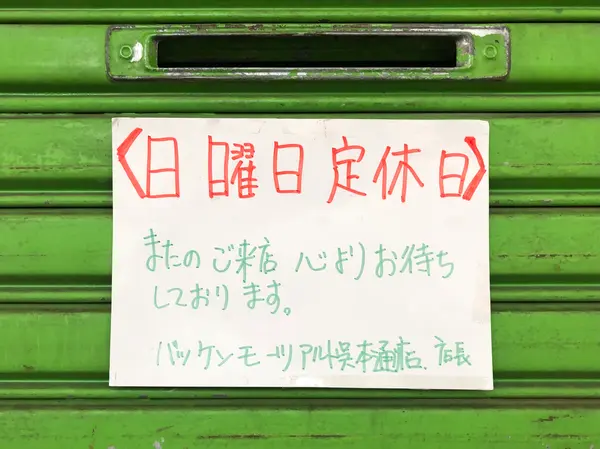 〈日曜日定休日〉
またのご来店 心よりお待ち
しております。
バッケンモーツアルト呉本通店. 店長